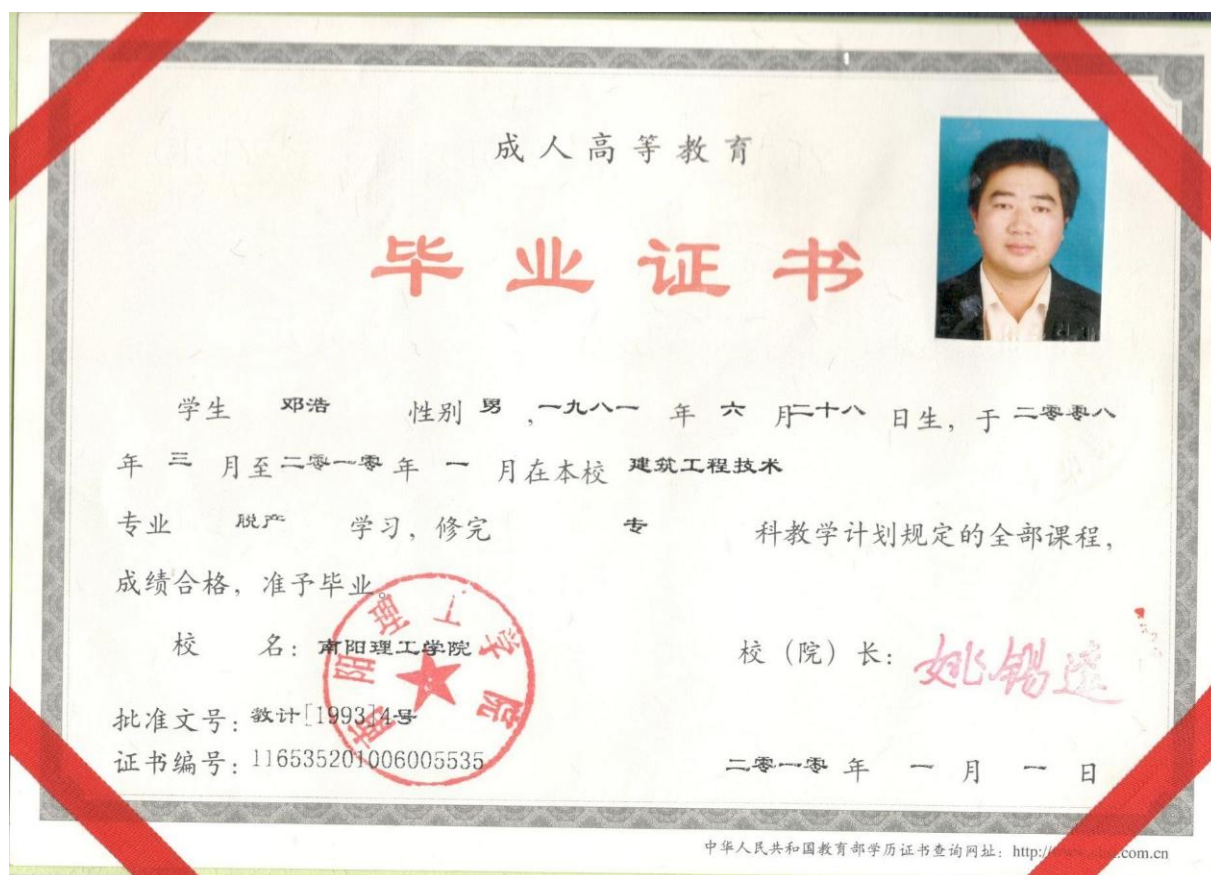 成人高等教育
毕业证书
学生 邓浩 性别 男 ,一九八一 年 六 月二十八 日生，于 二零零八
年 三 月至二零一零 年 一 月在本校 建筑工程技术
专业 脱产 学习，修完 专 科教学计划规定的全部课程，
成绩合格，准予毕业。
校 名：南阳理工学院
校（院）长：姚锡远
南阳理工学院
批准文号：教计[1993]4号
证书编号：116535201006005535
二零一零 年 一 月 一 日
中华人民共和国教育部学历证书查询网址：http:// .com.cn